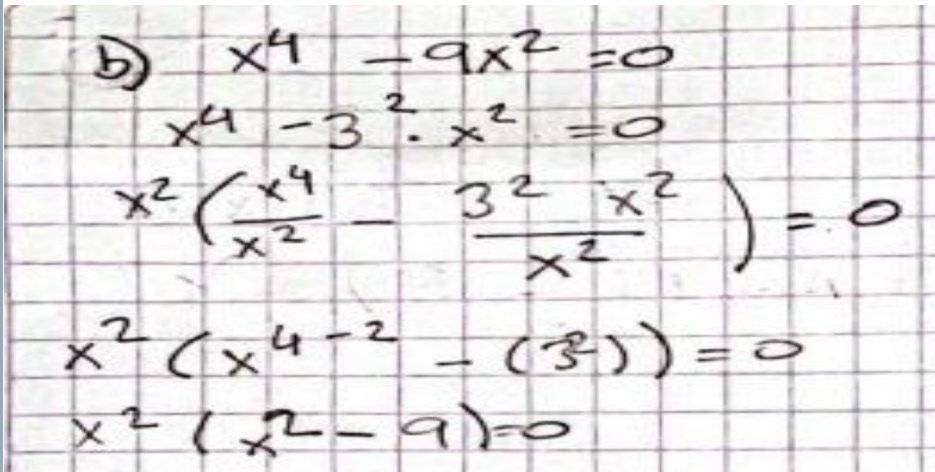 b) x⁴ - 9x² = 0
x⁴ - 3² · x² = 0
x² (x⁴/x² - 3² x²/x²) = 0
x² (x⁴⁻² - (3²)) = 0
x² (x² - 9) = 0